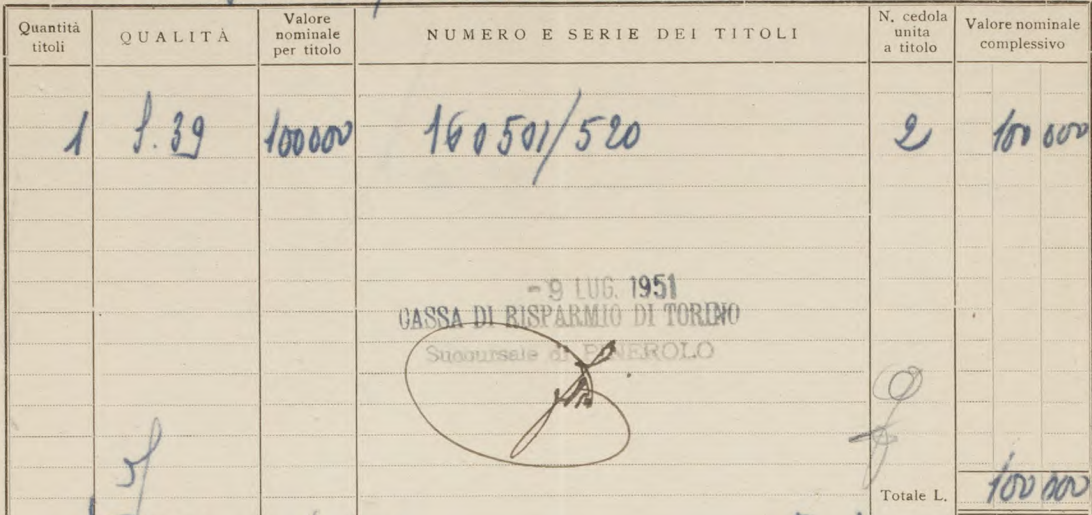 Quantità titoli QUALITÀ Valore nominale per titolo NUMERO E SERIE DEI TITOLI N. cedola unita a titolo Valore nominale complessivo
1 S. 39 100000 160501/520 2 100 000
- 9 LUG. 1951
CASSA DI RISPARMIO DI TORINO
Succursale di PINEROLO
Totale L. 100 000